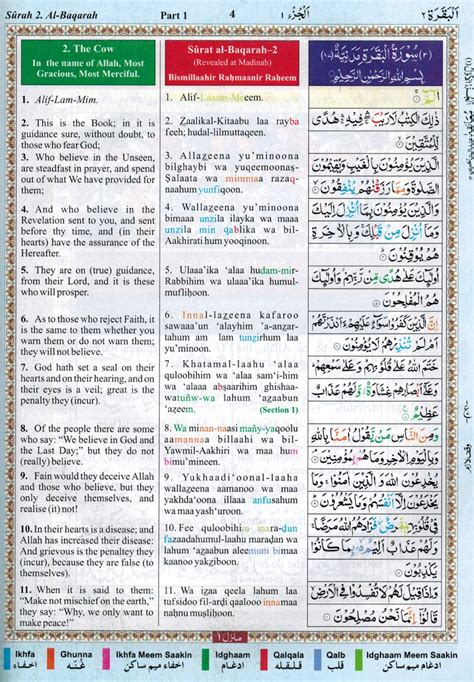 Sûrah 2. Al-Baqarah
Part 1
4
اَلْجُزْء ١
اَلْبَقَرَة ٢
2. The Cow
In the name of Allah, Most
Gracious, Most Merciful.
1. Alif-Lam-Mim.
2. This is the Book; in it is
guidance sure, without doubt, to
those who fear God;
3. Who believe in the Unseen,
are steadfast in prayer, and spend
out of what We have provided for
them;
4. And who believe in the
Revelation sent to you, and sent
before thy time, and (in their
hearts) have the assurance of the
Hereafter.
5. They are on (true) guidance,
from their Lord, and it is these
who will prosper.
6. As to those who reject Faith, it
is the same to them whether you
warn them or do not warn them;
they will not believe.
7. God hath set a seal on their
hearts and on their hearing, and on
their eyes is a veil; great is the
penalty they (incur).
8. Of the people there are some
who say: "We believe in God and
the Last Day;" but they do not
(really) believe.
9. Fain would they deceive Allah
and those who believe, but they
only deceive themselves, and
realise (it) not!
10. In their hearts is a disease; and
Allah has increased their disease:
And grievous is the penalty they
(incur), because they are false (to
themselves).
11. When it is said to them:
"Make not mischief on the earth,"
they say: "Why, we only want to
make peace!"
Sûrat al-Baqarah–2
(Revealed at Madinah)
Bismillaahir Raḥmaanir Raḥeem
1. Alif-Laaam-Meem.
2. Zaalikal-Kitaabu laa rayba
feeh; hudal-lilmuttaqeen.
3. Allazeena yu'minoona
bilghaybi wa yuqeemoonaṣ-
Ṣalaata wa mimmaa razaq-
naahum yunfiqoon.
4. Wallazeena yu'minoona
bimaaa unzila ilayka wa maaa
unzila min qablika wa bil-
Aakhirati hum yooqinoon.
5. Ulaaa'ika 'alaa hudam-mir-
Rabbihim wa ulaaa'ika humul-
mufliḥoon.
6. Innal-lazeena kafaroo
sawaaa'un 'alayhim 'a-anzar-
tahum am lam tunzirhum laa
yu'minoon.
7. Khatamal-laahu 'alaa
quloobihim wa 'alaa sam'i-him
wa 'alaaa abṣaarihim ghishaa-
watuñw-wa lahum 'azaabun
'aẓeem. (Section 1)
8. Wa minan-naasi mañy-yaqoolu
aamannaa billaahi wa bil-
Yawmil-Aakhiri wa maa hum
bimu'mineen.
9. Yukhaadi'oonal-laaha
wallazeena aamanoo wa maa
yakhda'oona illaaa anfusahum
wa maa yash'uroon.
10. Fee quloobihim mara-ḍun
fazaadahumul-laahu maraḍan wa
lahum 'azaabun aleemum bimaa
kaanoo yakziboon.
11. Wa izaa qeela lahum laa
tufsidoo fil-arḍi qaalooo innamaa
naḥnu muṣliḥoon.
(٢) سُوْرَةُ الْبَقَرَةِ مَدَنِيَّةٌ (٨٧)
بِسْمِ اللهِ الرَّحْمٰنِ الرَّحِيْمِ
الٓمّٓ ۚ
ذٰلِكَ الْكِتٰبُ لَا رَيْبَ ۛ فِيْهِ ۛ هُدًى
لِّلْمُتَّقِيْنَ
الَّذِيْنَ يُؤْمِنُوْنَ بِالْغَيْبِ وَيُقِيْمُوْنَ
الصَّلٰوةَ وَمِمَّا رَزَقْنٰهُمْ يُنْفِقُوْنَ
وَالَّذِيْنَ يُؤْمِنُوْنَ بِمَآ اُنْزِلَ اِلَيْكَ
وَمَآ اُنْزِلَ مِنْ قَبْلِكَ ۚ
وَبِالْاٰخِرَةِ هُمْ يُوْقِنُوْنَ
اُولٰٓئِكَ عَلٰى هُدًى مِّنْ رَّبِّهِمْ ۗ وَ
اُولٰٓئِكَ هُمُ الْمُفْلِحُوْنَ
اِنَّ الَّذِيْنَ كَفَرُوْا سَوَآءٌ عَلَيْهِمْ ءَاَنْذَرْتَهُمْ
اَمْ لَمْ تُنْذِرْهُمْ لَا يُؤْمِنُوْنَ
خَتَمَ اللهُ عَلٰى قُلُوْبِهِمْ وَعَلٰى سَمْعِهِمْ ۗ
وَعَلٰٓى اَبْصَارِهِمْ غِشَاوَةٌ ۫ وَّلَهُمْ عَذَابٌ
عَظِيْمٌ
وَمِنَ النَّاسِ مَنْ يَّقُوْلُ اٰمَنَّا بِاللهِ
وَبِالْيَوْمِ الْاٰخِرِ وَمَا هُمْ بِمُؤْمِنِيْنَ
يُخٰدِعُوْنَ اللهَ وَالَّذِيْنَ اٰمَنُوْا ۚ وَمَا
يَخْدَعُوْنَ اِلَّآ اَنْفُسَهُمْ وَمَا يَشْعُرُوْنَ
فِيْ قُلُوْبِهِمْ مَّرَضٌ ۙ فَزَادَهُمُ اللهُ مَرَضًا ۚ
وَلَهُمْ عَذَابٌ اَلِيْمٌ ۢ بِمَا كَانُوْا
يَكْذِبُوْنَ
وَاِذَا قِيْلَ لَهُمْ لَا تُفْسِدُوْا فِى الْاَرْضِ ۙ
قَالُوْٓا اِنَّمَا نَحْنُ مُصْلِحُوْنَ
منزل ١
Ikhfa
اخفاء
Ghunna
غُنّه
Ikhfa Meem Saakin
اخفاء ميم ساكن
Idghaam
ادغام
Qalqala
قلقله
Qalb
قلب
Idghaam Meem Saakin
ادغام ميم ساكن